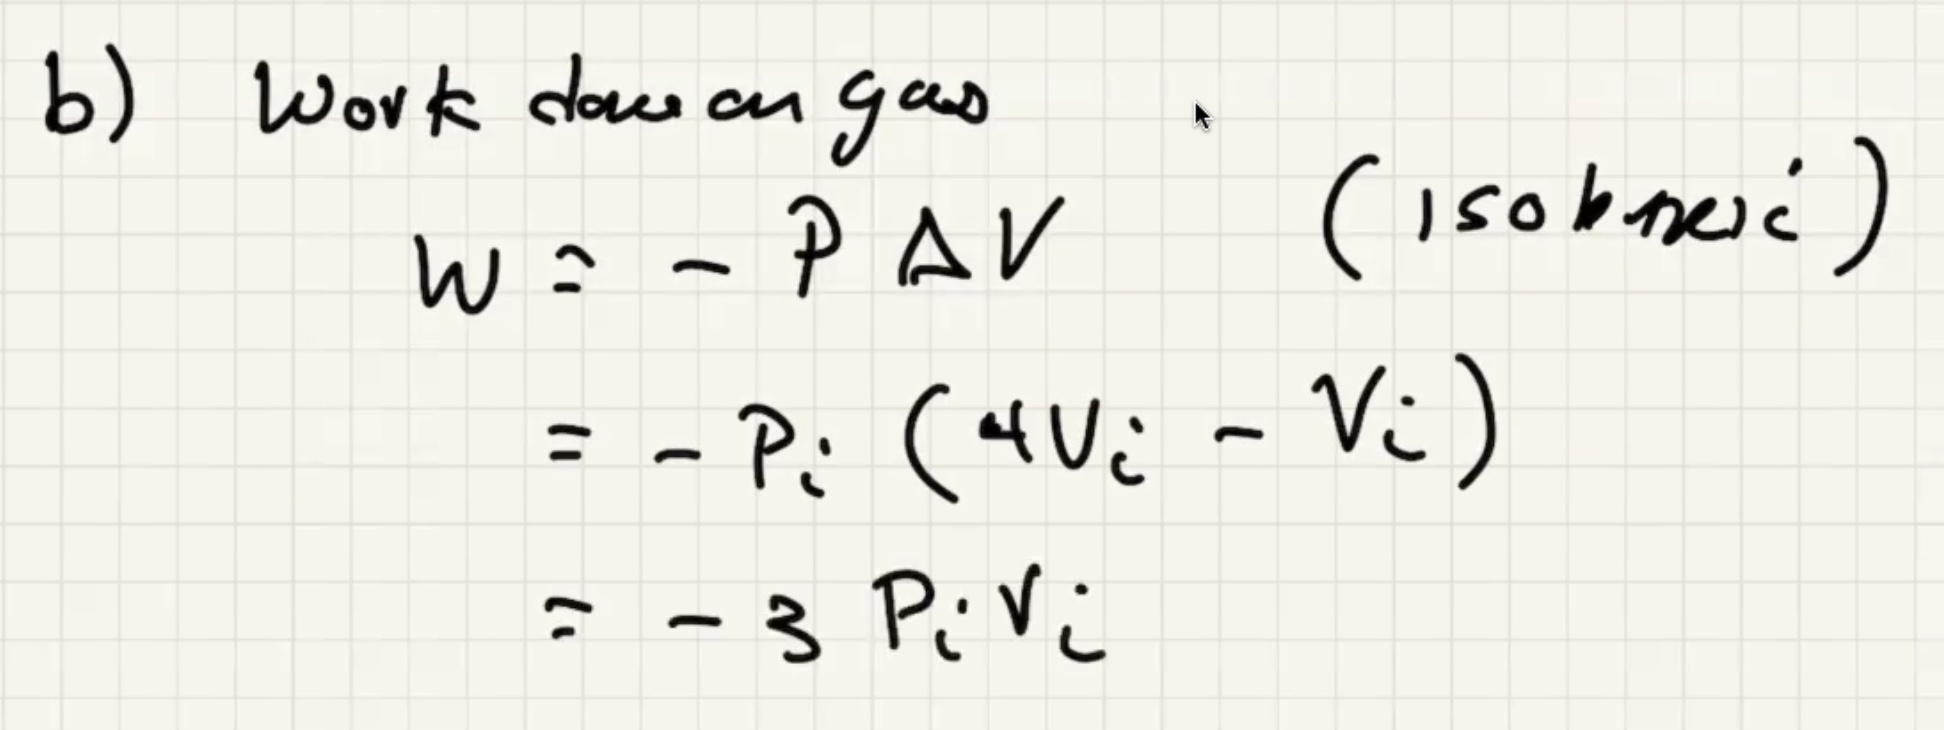 b) Work done on gas
W = - P ΔV (isobaric)
= - Pi (4Vi - Vi)
= - 3 PiVi